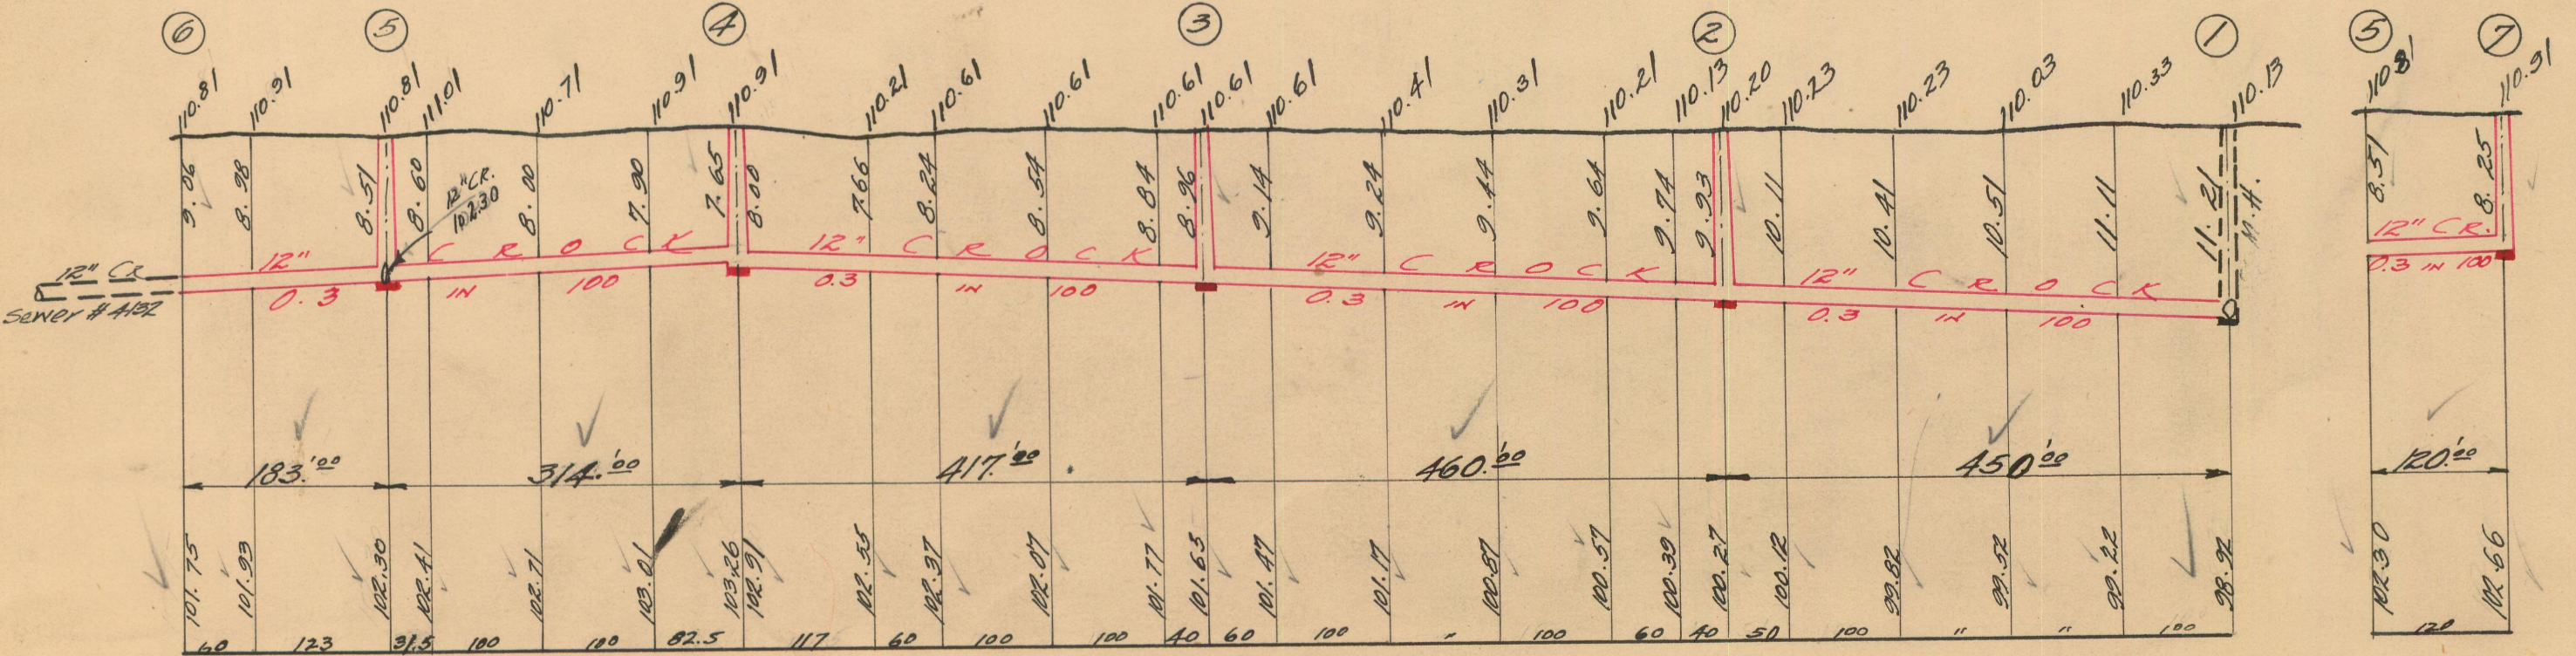 6 5 4 3 2 1 5 7
110.81 110.91 110.81 111.01 110.71 110.91 110.91 110.21 110.61 110.61 110.61 110.61 110.61 110.41 110.31 110.21 110.13 110.20 110.23 110.23 110.03 110.33 110.13 110.81 110.91
9.06 8.98 8.51 8.60 8.00 7.90 7.65 8.00 7.66 8.24 8.54 8.84 8.96 9.14 9.24 9.44 9.64 9.74 9.93 10.11 10.41 10.51 11.11 11.21 M.H. 8.51 8.25
12" CR.
102.30
12" CR
Sewer # 4132
12" C R O C K 12" C R O C K 12" C R O C K 12" C R O C K 12" CR.
0.3 IN 100 0.3 IN 100 0.3 IN 100 0.3 IN 100 0.3 IN 100
183.'00 314.'00 417.'00 460.'00 450'00 120.'00
101.75 101.93 102.30 102.41 102.71 103.01 103.26 102.91 102.55 102.37 102.07 101.77 101.65 101.47 101.17 100.87 100.57 100.39 100.27 100.12 99.82 99.52 99.22 98.92 102.30 102.66
60 123 31.5 100 100 82.5 117 60 100 100 40 60 100 " 100 60 40 50 100 " " 100 120